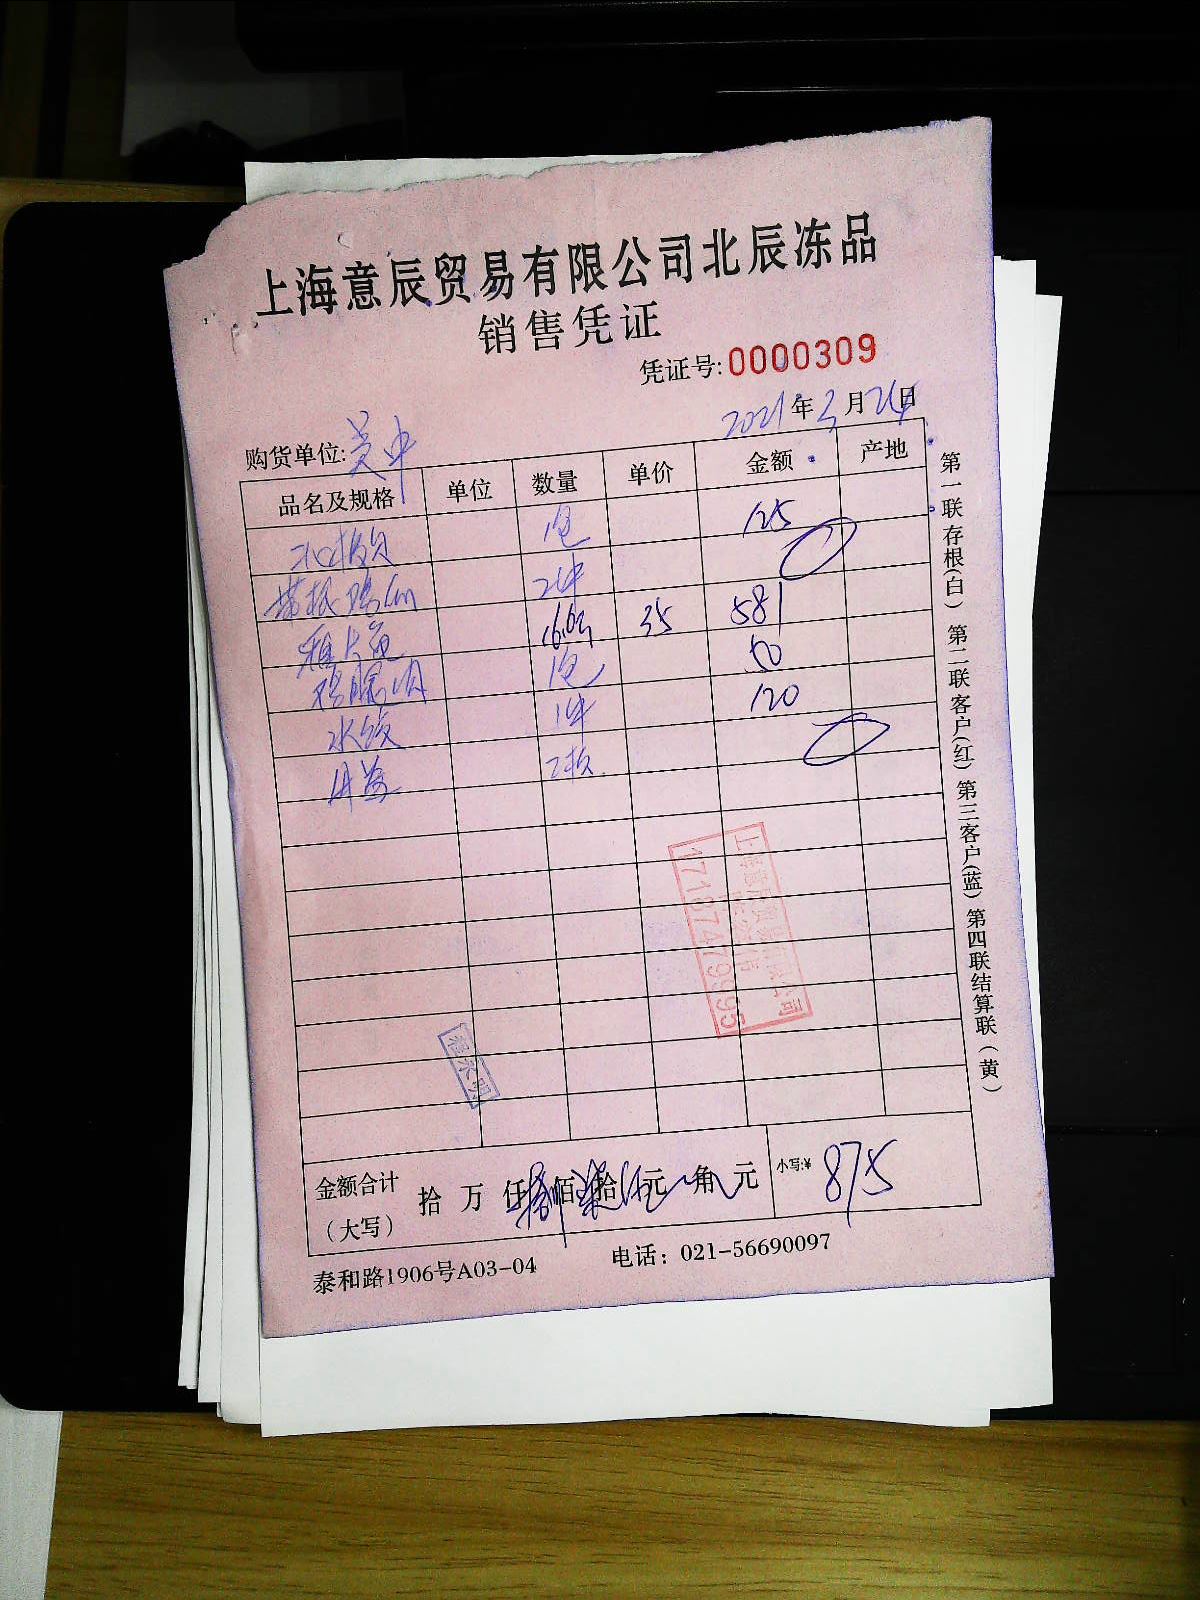 上海意辰贸易有限公司北辰冻品
销售凭证
凭证号:0000309
2021年3月24日
购货单位:吴中
品名及规格 单位 数量 单价 金额 产地
1包 125
2件
16.6 35 581
鸡腿肉 1包 50
水饺 1件 120
2板
金额合计 拾 万 仟 捌佰 柒拾 伍元 角 元 小写:¥ 875
(大写)
泰和路1906号A03-04 电话: 021-56690097
第一联存根(白) 第二联客户(红) 第三客户(蓝) 第四联结算联(黄)
17187479995
程永明